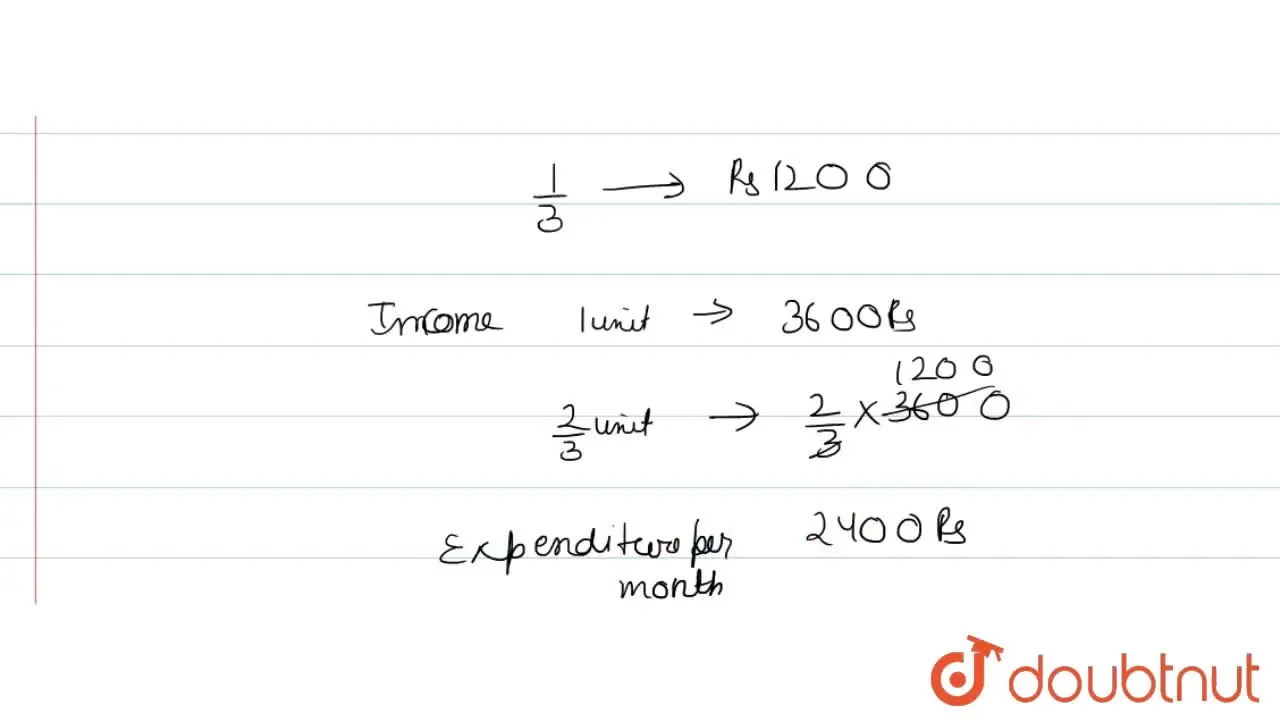 1/3 → Rs 1200
Income 1 unit → 3600 Rs
1200
2/3 unit → 2/3 × 3600
Expenditure per 2400 Rs
month
doubtnut